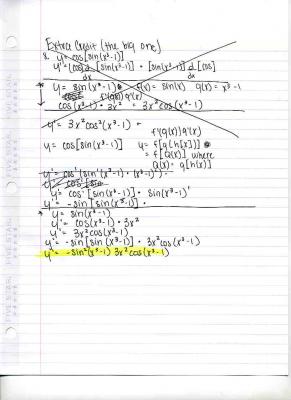 Extra Credit (the big one)
8. y = cos[sin(x³-1)]
y' = (cos) d [sin(x³-1)] + [sin(x³-1)] d [cos]
dx dx
y = sin(x³-1) f(x) = sin(x) g(x) = x³-1
f'(g(x))g'(x)
cos(x³-1) · 3x² = 3x²cos(x³-1)
y' = 3x²cos²(x³-1) +
f'(g(x))g'(x)
y = cos[sin(x³-1)] y = f(g[h(x)])
= f[Q(x)] where
Q(x) = g[h(x)]
y' = cos'(sin'(x³-1) · (x³-1)') ·
y' = cos' [sin
y' = cos' [sin(x³-1)] · sin(x³-1)'
y' = -sin[sin(x³-1)] ·
y = sin(x³-1)
y' = cos(x³-1) · 3x²
y' = 3x²cos(x³-1)
y' = -sin[sin(x³-1)] · 3x²cos(x³-1)
y' = -sin²(x³-1) 3x²cos(x³-1)
FIVE STAR
FIVE STAR
FIVE STAR
FIVE STAR